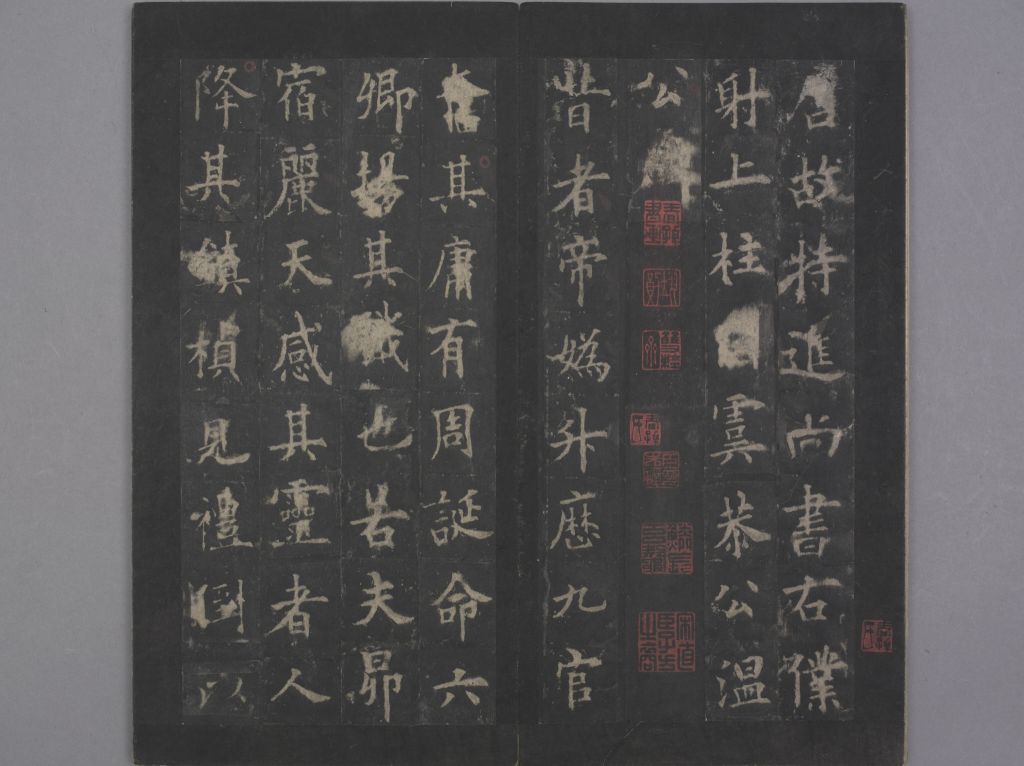 唐故特進尚書右僕
射上柱國虞恭公温
公碑
昔者帝媯升歷九官
奮其庸有周誕命六
卿揚其職也若夫昴
宿麗天感其靈者人
降其鎮楨見禮國以